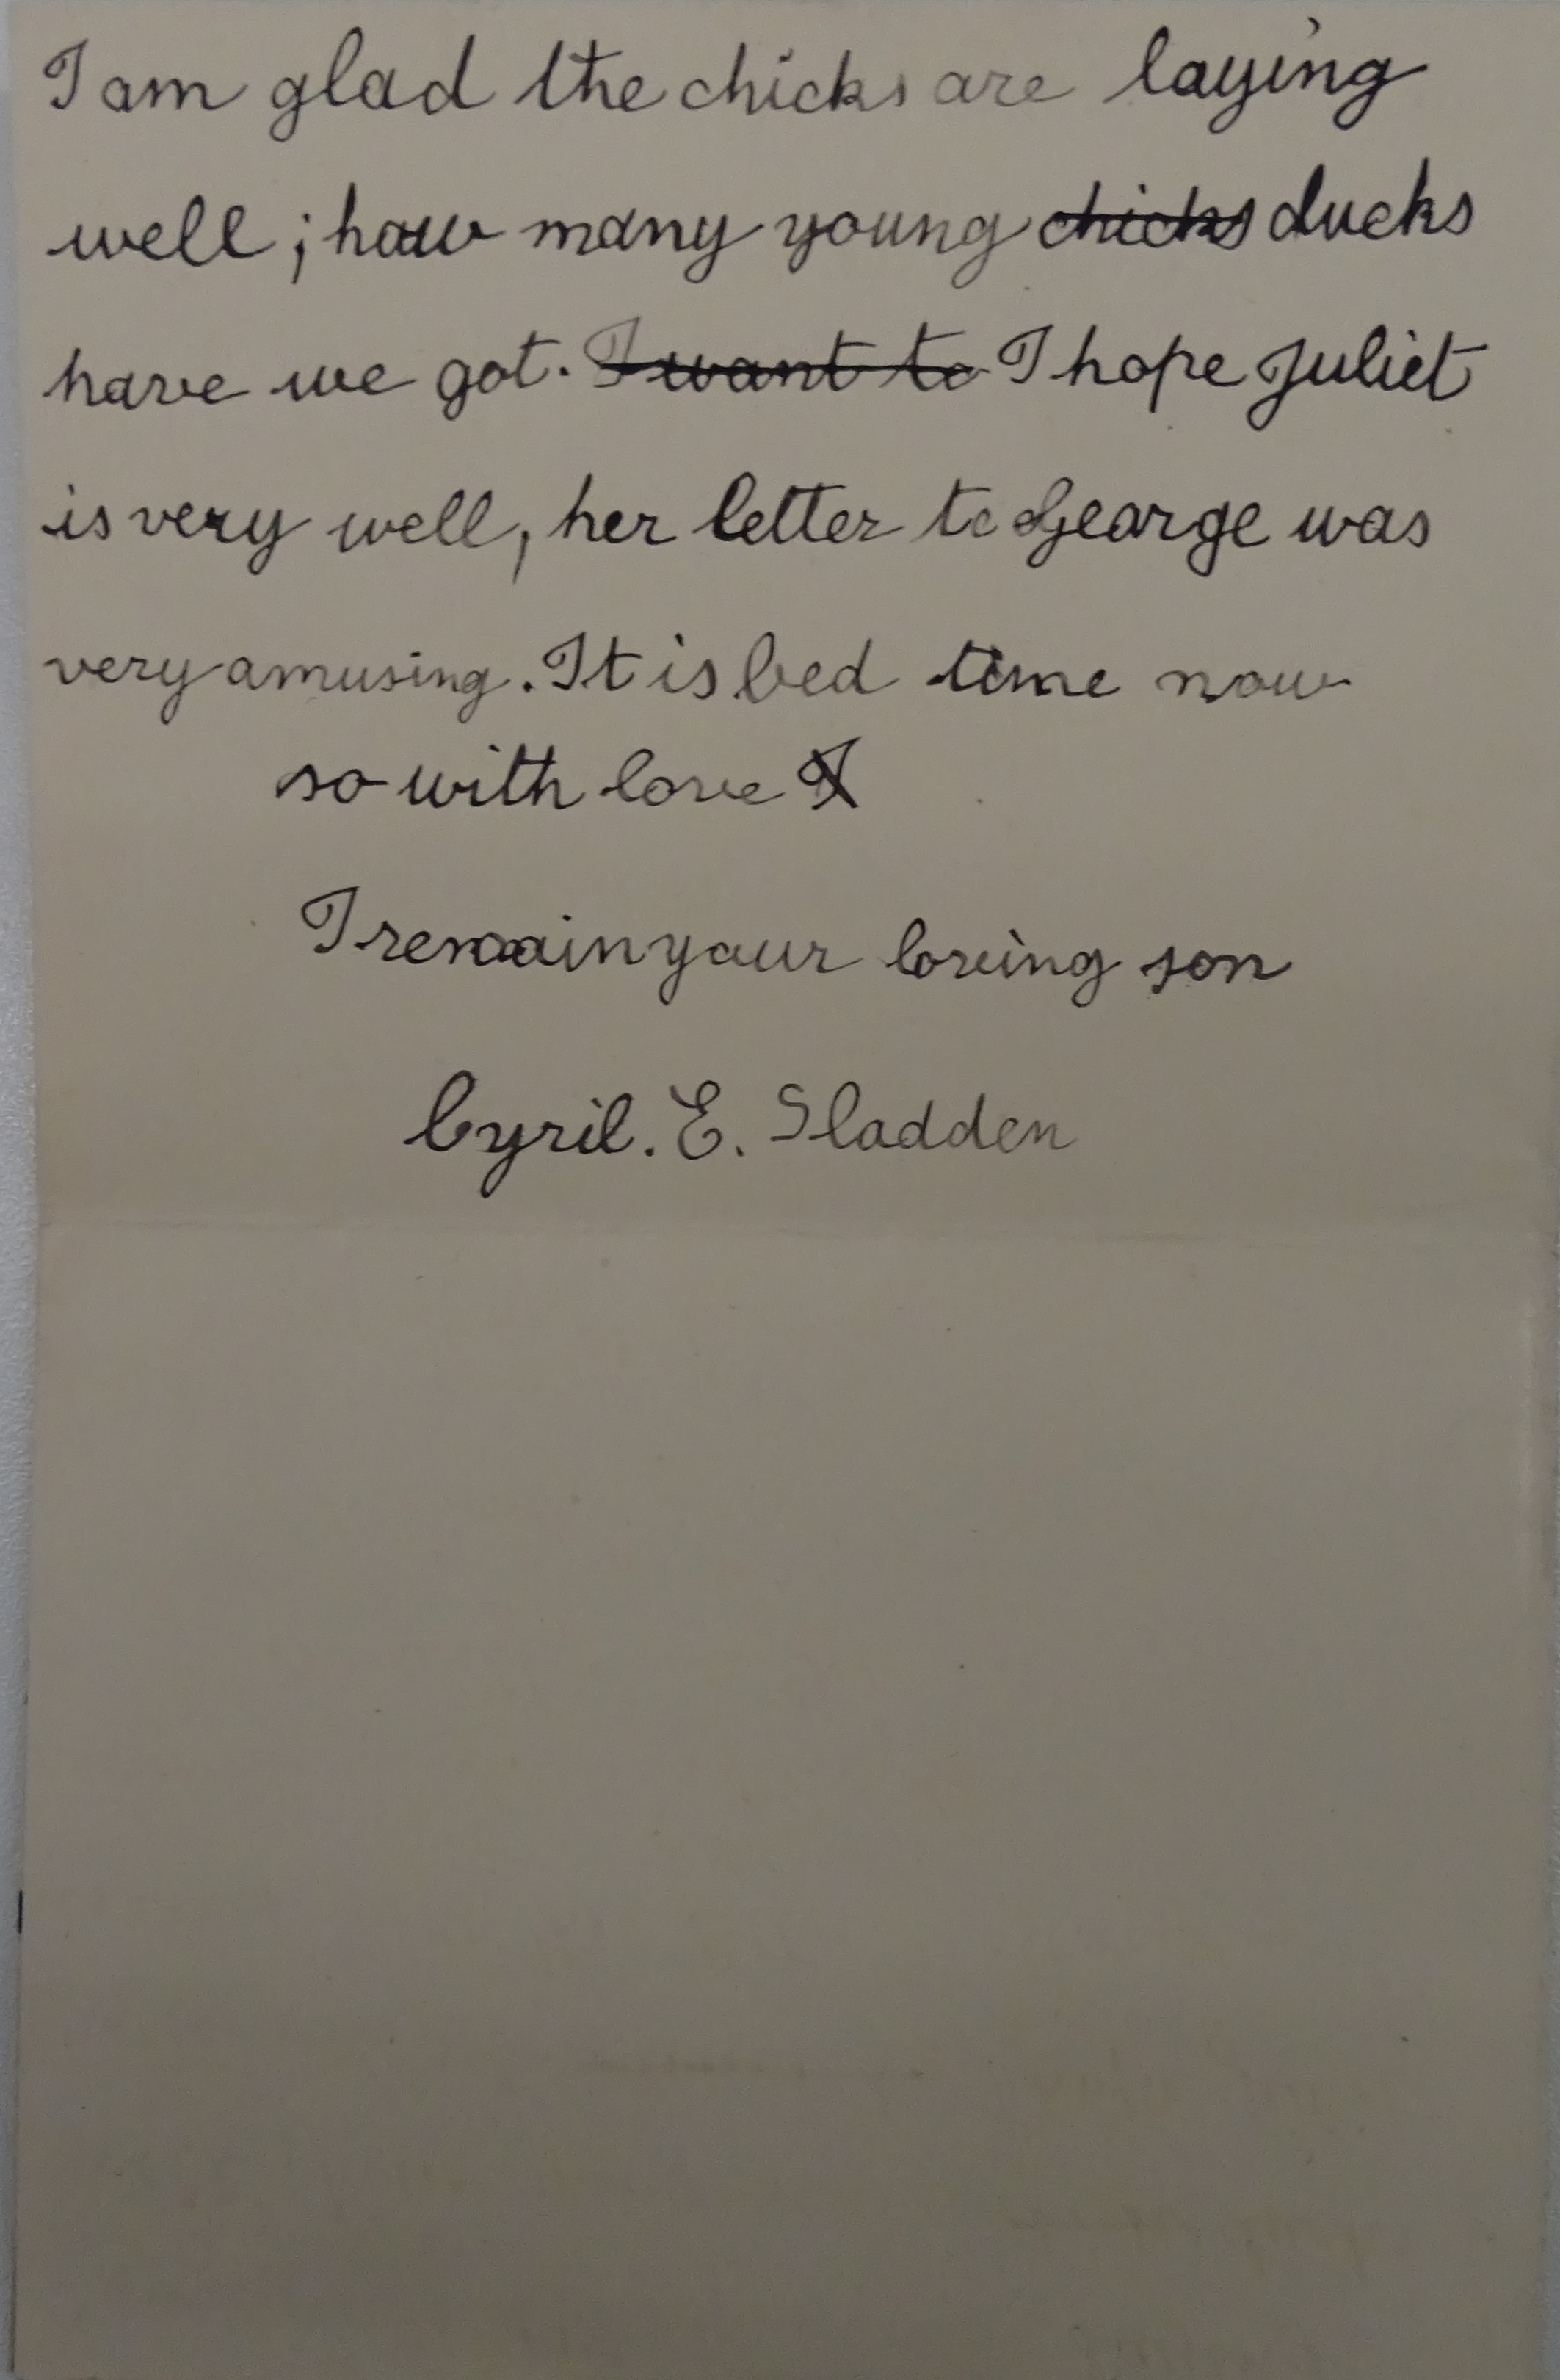 I am glad the chicks are laying
well; how many young chicks ducks
have we got. I want to I hope Juliet
is very well, her letter to George was
very amusing. It is bed time now
so with love I
I remain your loving son
Cyril. E. Sladden